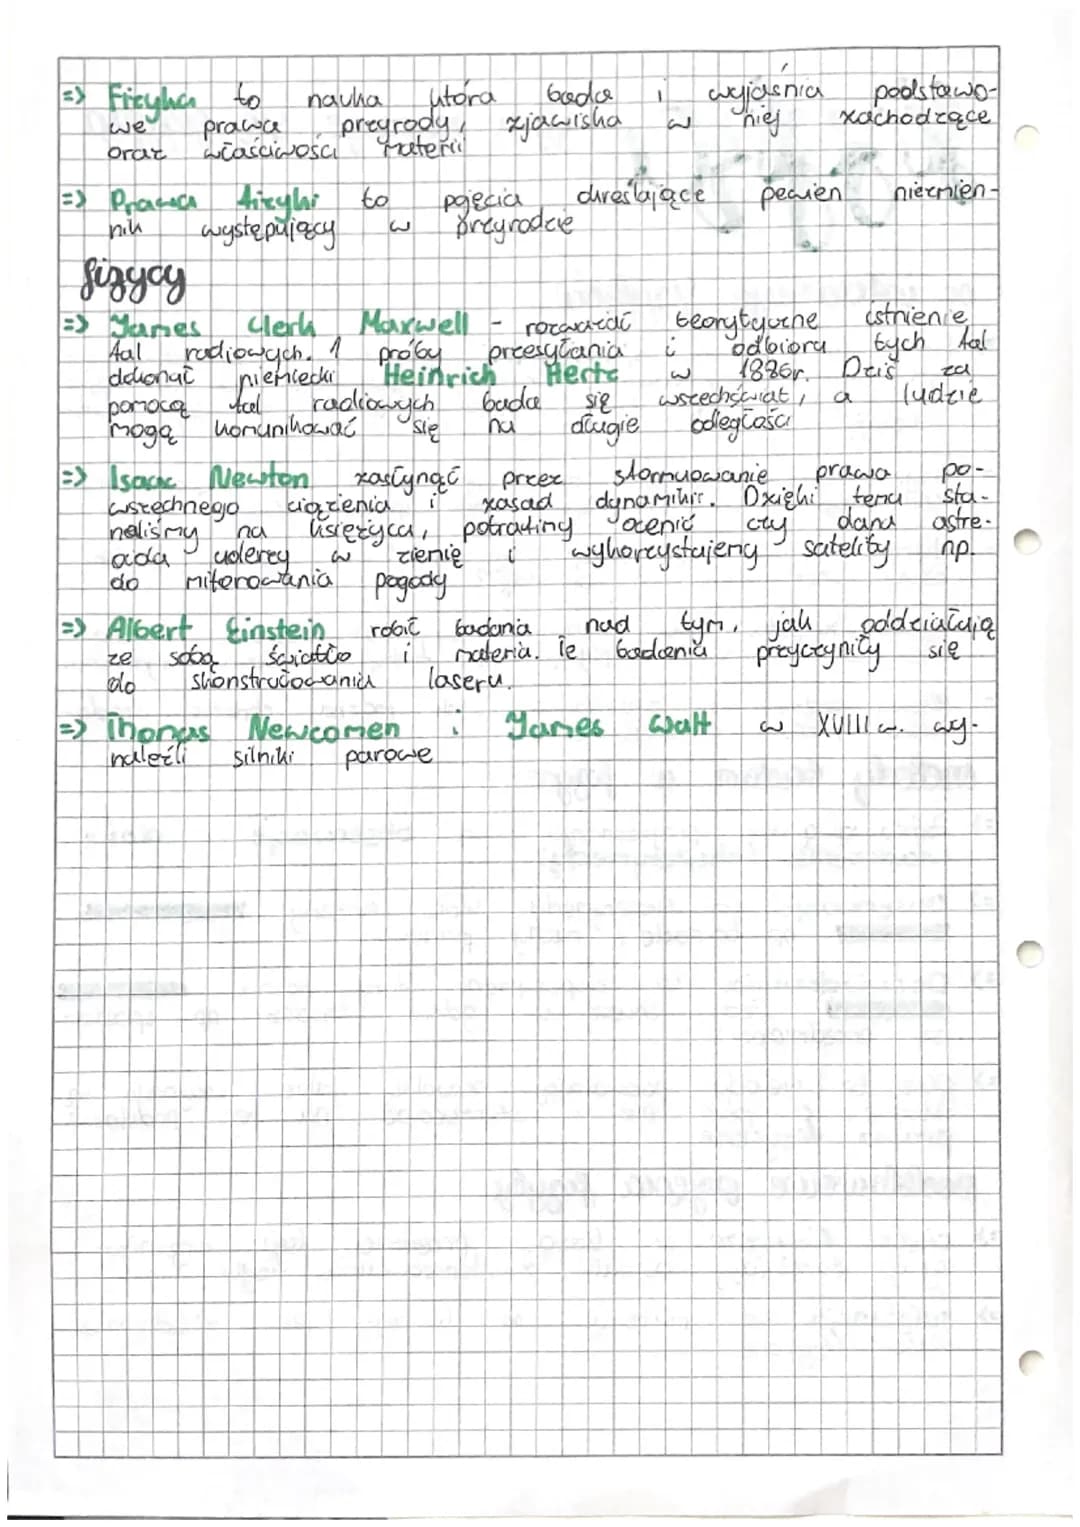 => Fizyka to nauka która bada i wyjaśnia podstawo-
we prawa przyrody, zjawiska w niej zachodzące
oraz właściwości materii
=> Prawa fizyki to pojęcia określające pewien niezmien-
nik występujący w przyrodzie
fizycy
=> James Clerk Maxwell - rozważać teorytyczne istnienie
fal radiowych. 1 próby przesyłania i odbioru tych fal
dokonał niemiecki Heinrich Hertz w 1886r. Dziś za
pomocą fal radiowych bada się wszechświat, a ludzie
mogą komunikować się na długie odległości
=> Isaac Newton zasłynął przez sformuowanie prawa po-
wszechnego ciążenia i zasad dynamiki. Dzięki temu sta-
neliśmy na księżycu, potrafimy ocenić czy dana astre-
oida uderzy w ziemię i wykorzystujemy satelity np.
do mitorowania pogody
=> Albert Einstein robił badania nad tym, jak oddziałują
ze sobą światło i materia. Te badania przyczyniły się
do skonstruowania laseru.
=> Thomas Newcomen i James Watt w XVIII w. wy-
naleźli silniki parowe